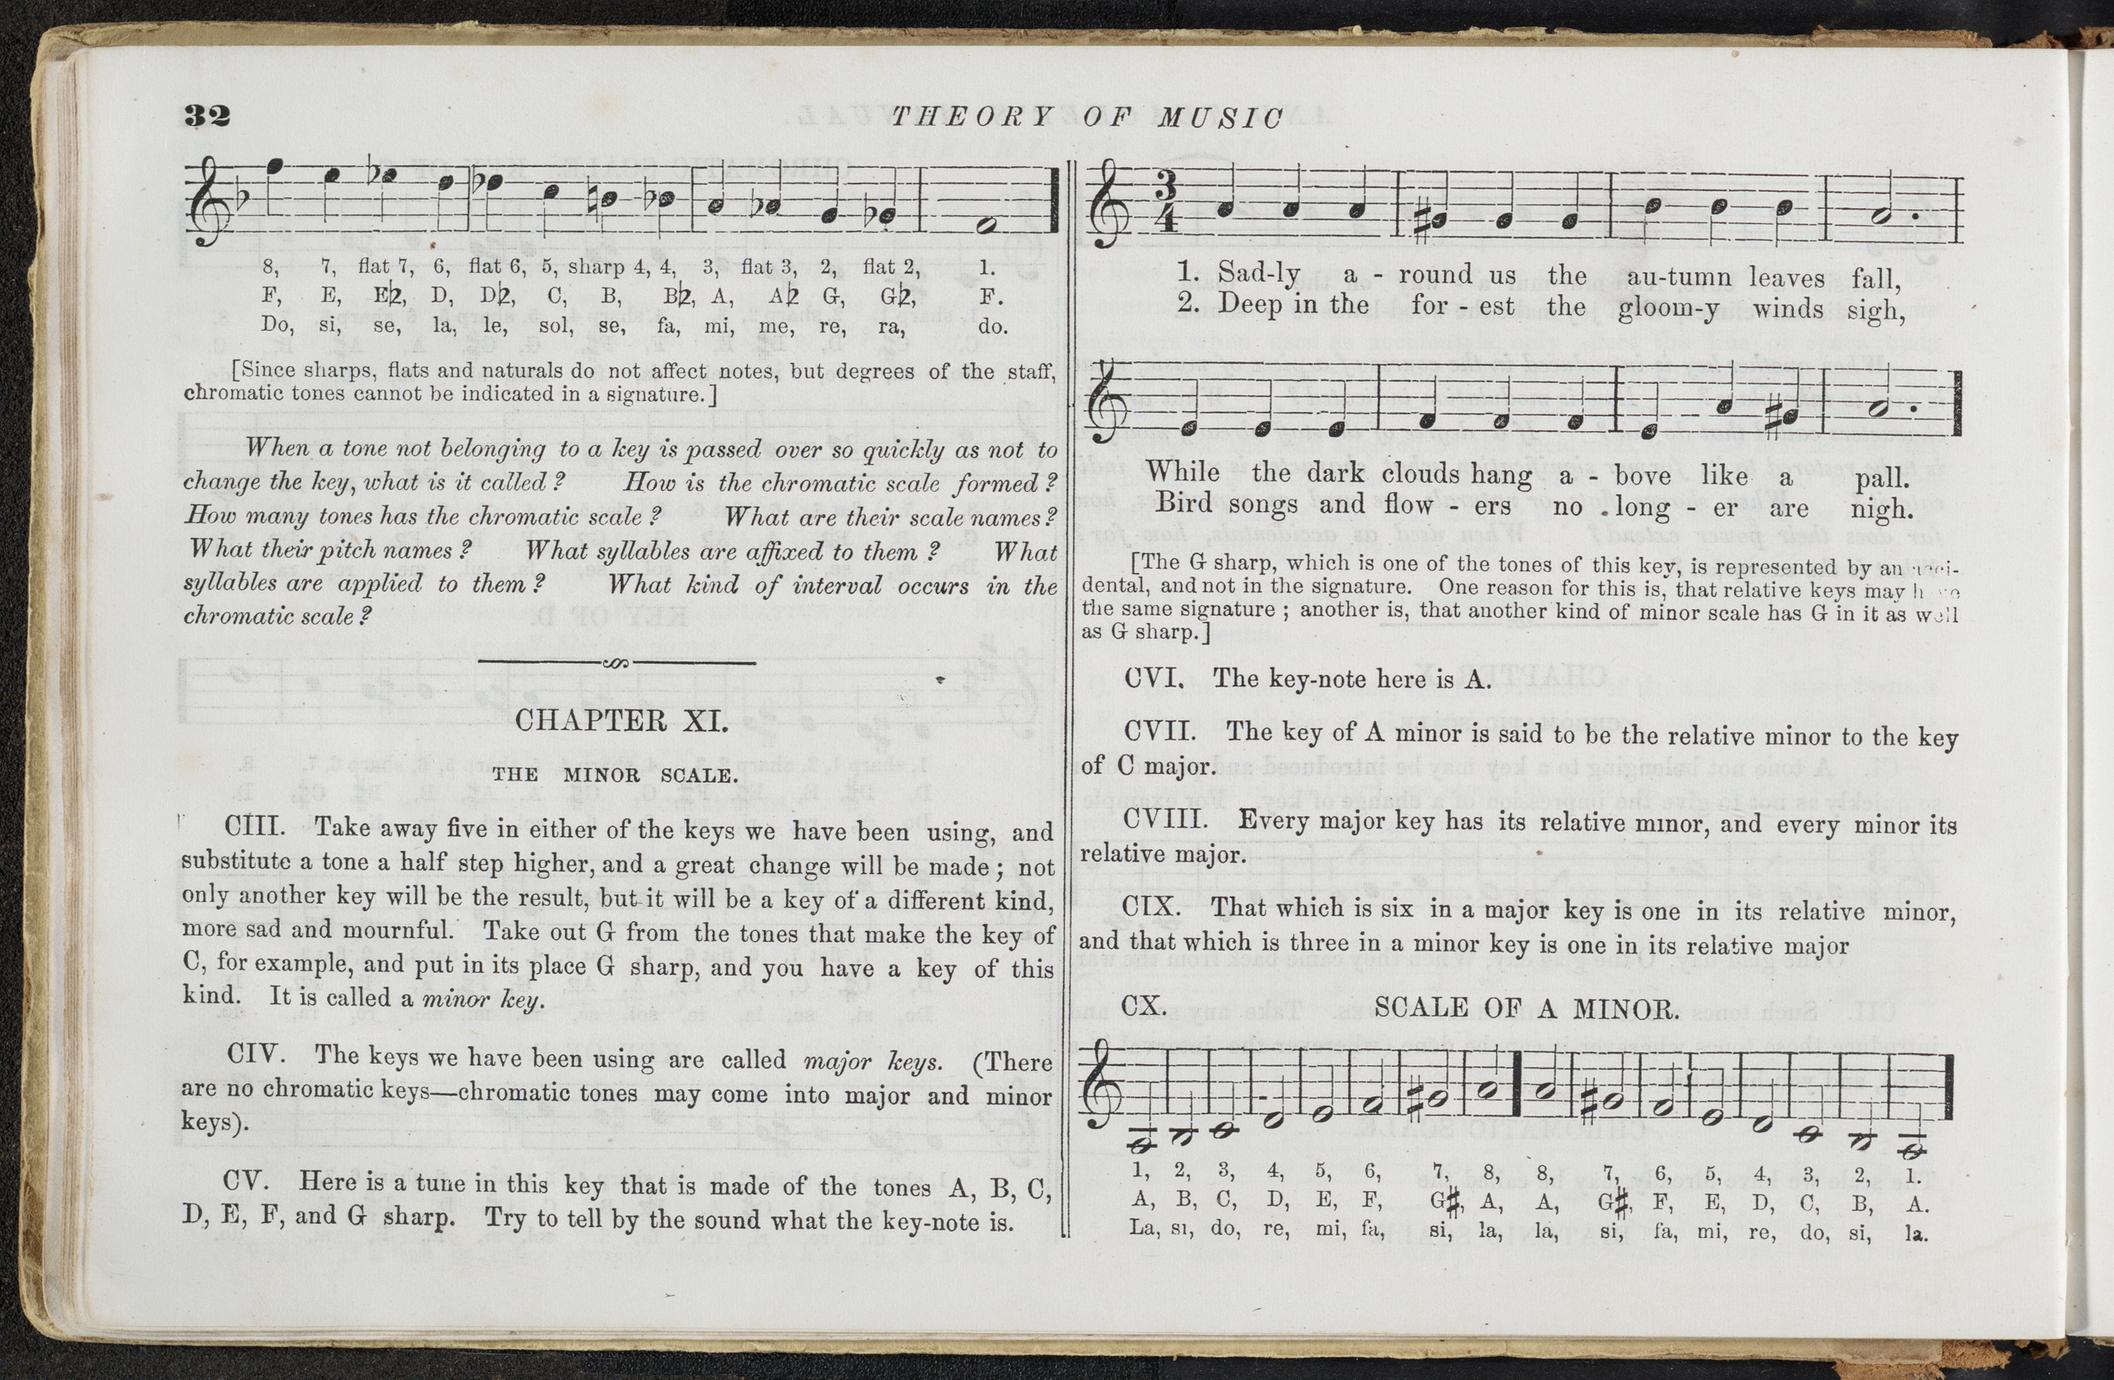 32
THEORY OF MUSIC
8, 7, flat 7, 6, flat 6, 5, sharp 4, 4, 3, flat 3, 2, flat 2, 1.
F, E, E♭, D, D♭, C, B, B♭, A, A♭ G, G♭, F.
Do, si, se, la, le, sol, se, fa, mi, me, re, ra, do.
[Since sharps, flats and naturals do not affect notes, but degrees of the staff,
chromatic tones cannot be indicated in a signature.]
When a tone not belonging to a key is passed over so quickly as not to
change the key, what is it called ? How is the chromatic scale formed ?
How many tones has the chromatic scale ? What are their scale names ?
What their pitch names ? What syllables are affixed to them ? What
syllables are applied to them ? What kind of interval occurs in the
chromatic scale ?
CHAPTER XI.
THE MINOR SCALE.
CIII. Take away five in either of the keys we have been using, and
substitute a tone a half step higher, and a great change will be made ; not
only another key will be the result, but it will be a key of a different kind,
more sad and mournful. Take out G from the tones that make the key of
C, for example, and put in its place G sharp, and you have a key of this
kind. It is called a minor key.
CIV. The keys we have been using are called major keys. (There
are no chromatic keys—chromatic tones may come into major and minor
keys).
CV. Here is a tune in this key that is made of the tones A, B, C,
D, E, F, and G sharp. Try to tell by the sound what the key-note is.
3
4
1. Sad-ly a - round us the au-tumn leaves fall,
2. Deep in the for - est the gloom-y winds sigh,
While the dark clouds hang a - bove like a pall.
Bird songs and flow - ers no long - er are nigh.
[The G sharp, which is one of the tones of this key, is represented by an
dental, and not in the signature. One reason for this is, that relative keys may
the same signature ; another is, that another kind of minor scale has G in it as well
as G sharp.]
CVI. The key-note here is A.
CVII. The key of A minor is said to be the relative minor to the key
of C major.
CVIII. Every major key has its relative minor, and every minor its
relative major.
CIX. That which is six in a major key is one in its relative minor,
and that which is three in a minor key is one in its relative major
CX. SCALE OF A MINOR.
1, 2, 3, 4, 5, 6, 7, 8, 8, 7, 6, 5, 4, 3, 2, 1.
A, B, C, D, E, F, G♯, A, A, G♯, F, E, D, C, B, A.
La, si, do, re, mi, fa, si, la, la, si, fa, mi, re, do, si, la.